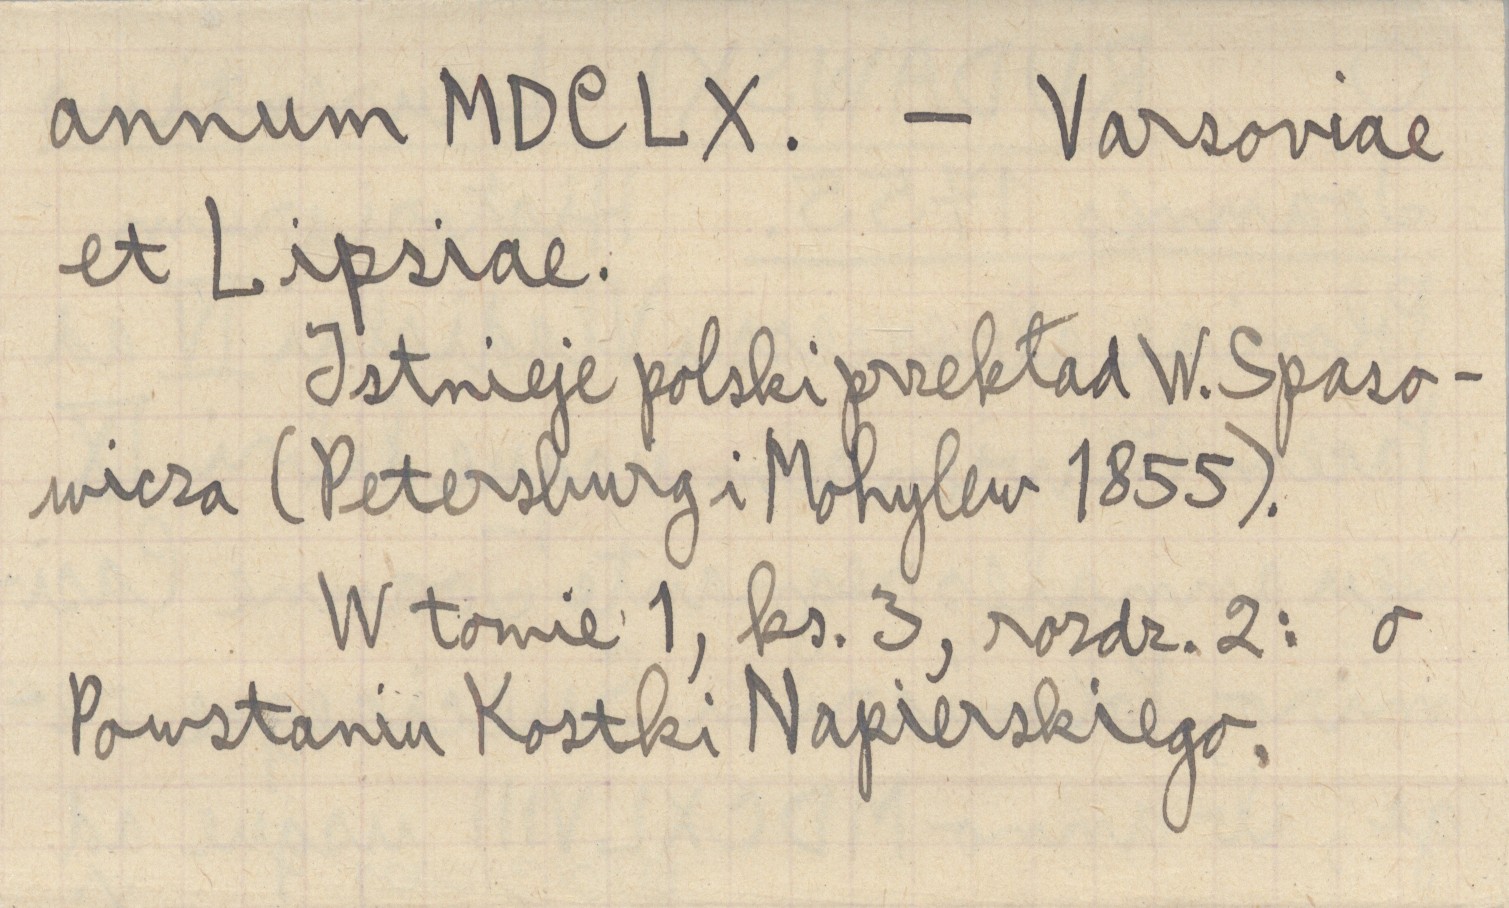 annum MDCLX. — Varsoviae
et Lipsiae.
Istnieje polski przekład W. Spaso-
wicza (Petersburg i Mohylew 1855).
W tomie 1, ks. 3, rozdz. 2: o
Powstaniu Kostki Napierskiego.